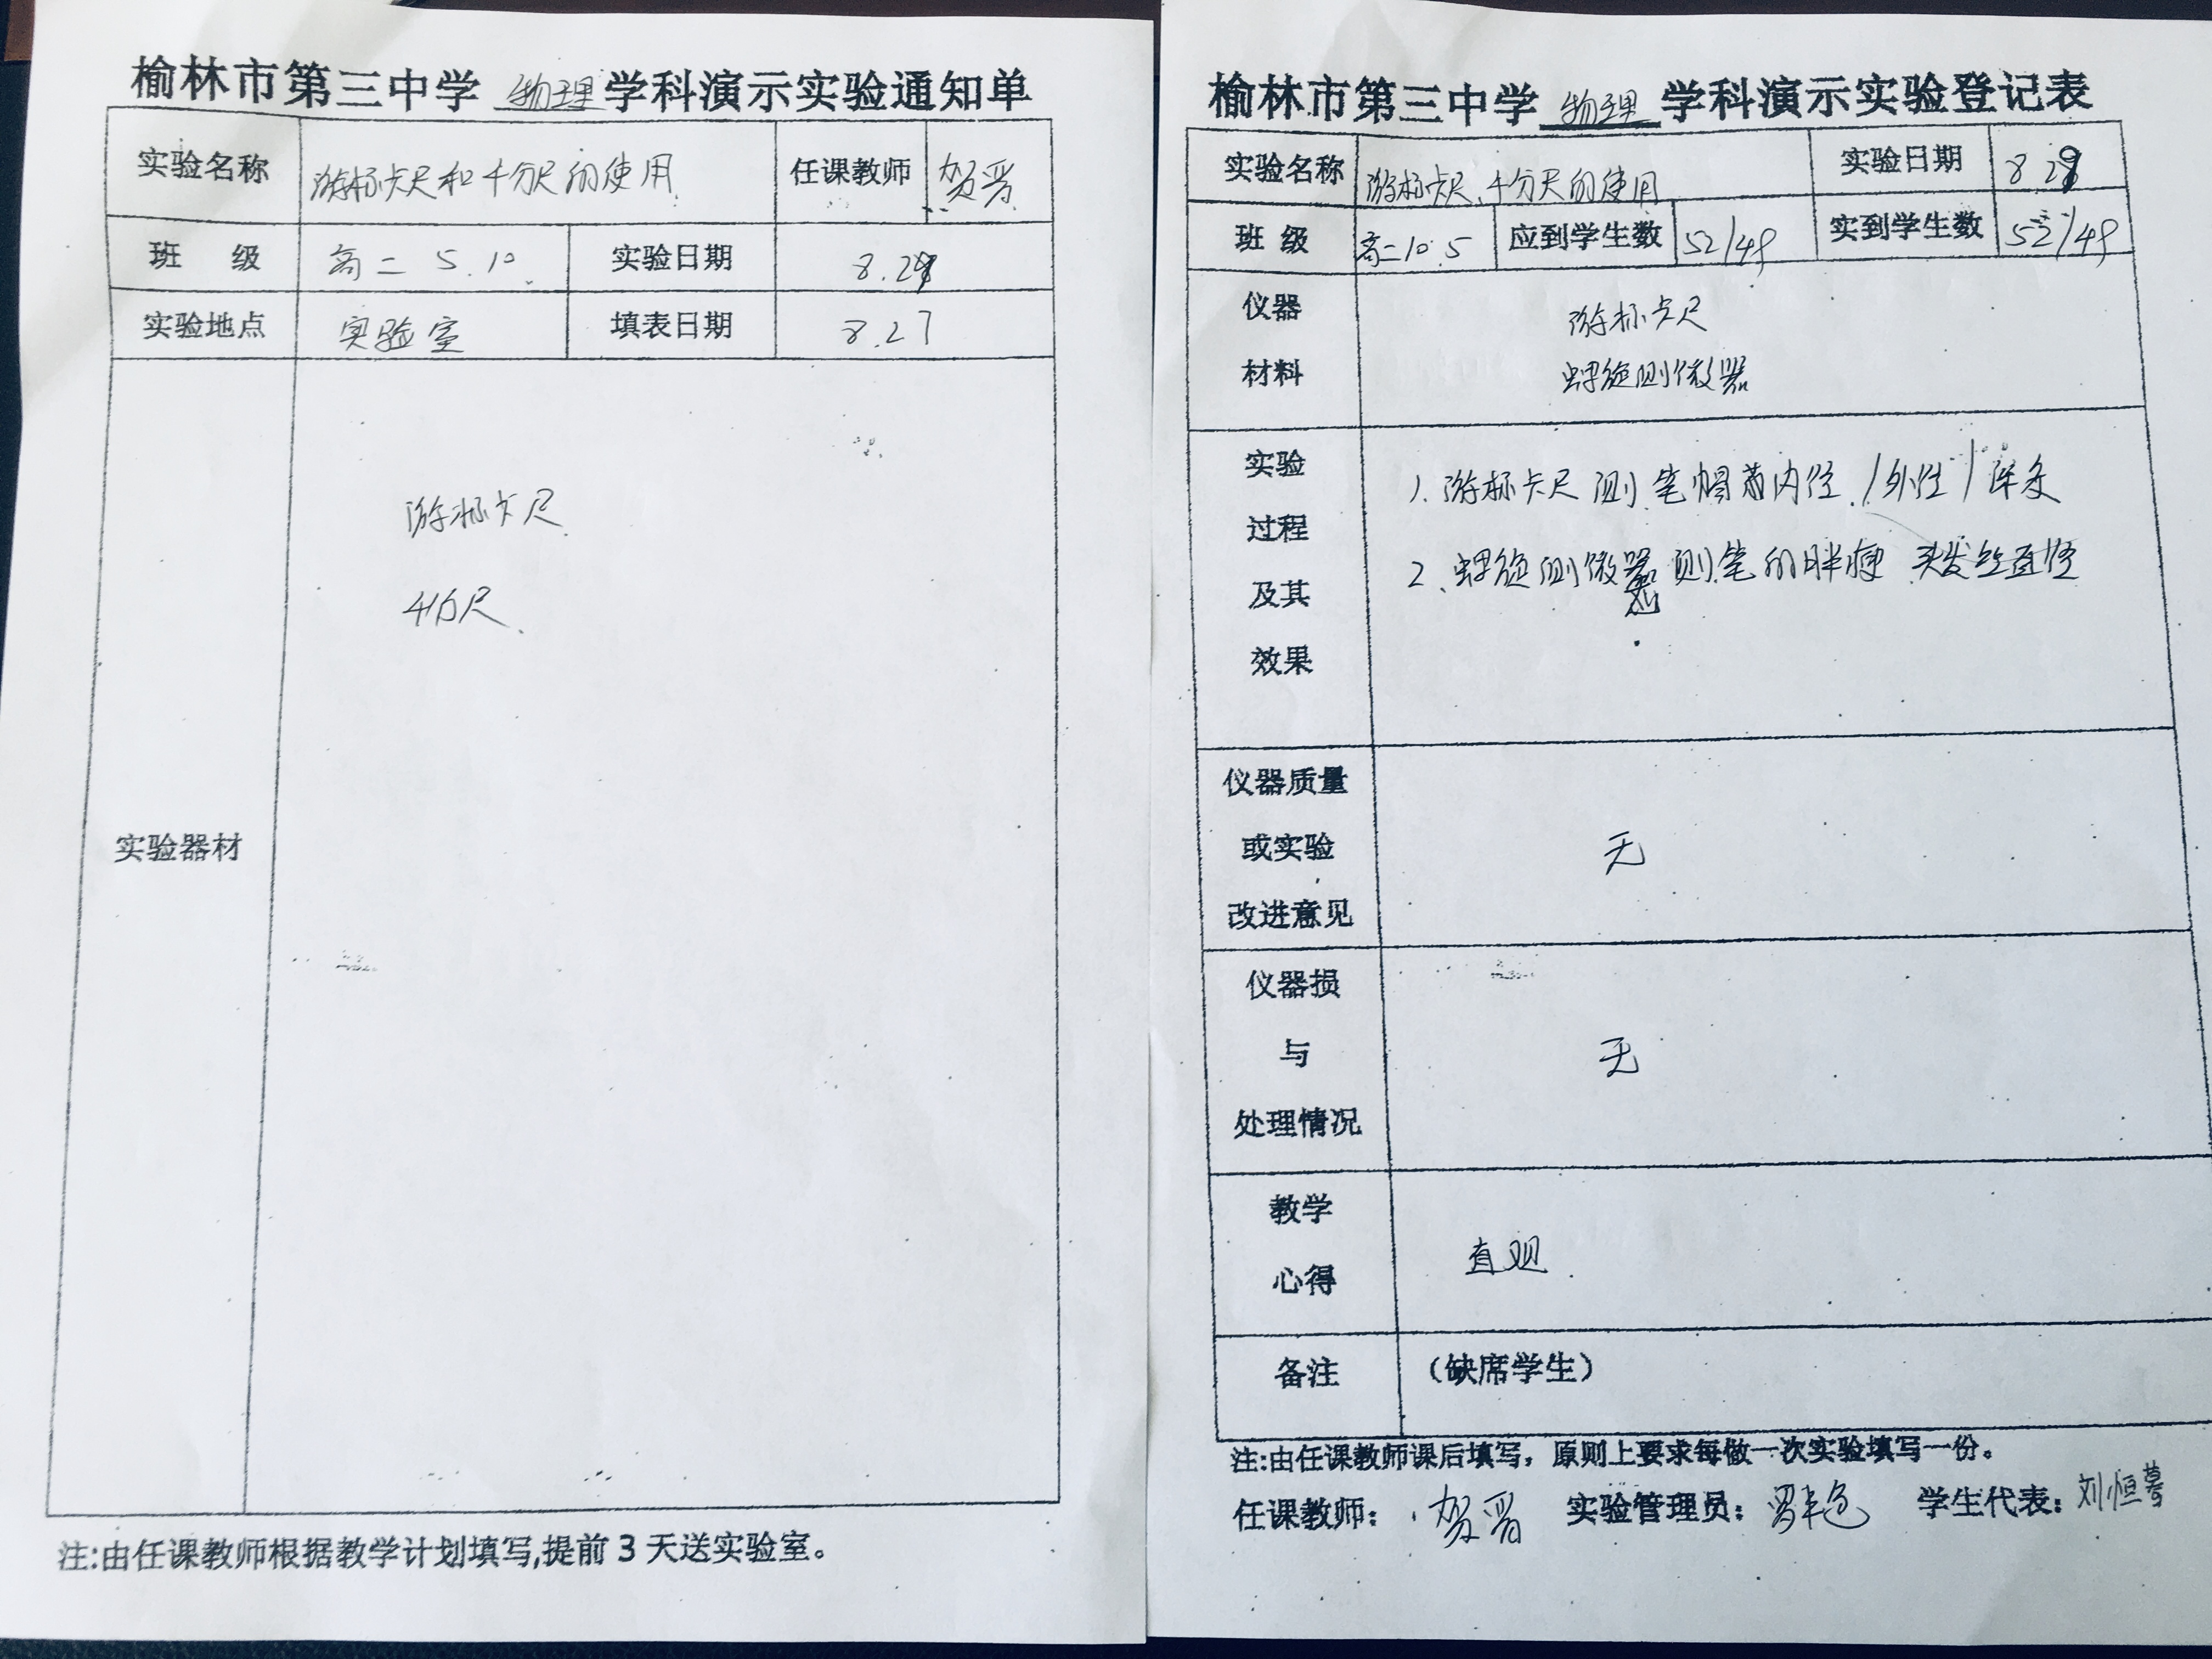 榆林市第三中学 物理 学科演示实验通知单
实验名称 游标卡尺和千分尺的使用 任课教师 贺晋
班 级 高二 5.10 实验日期 8.29
实验地点 实验室 填表日期 8.27
实验器材
游标卡尺
千分尺
注:由任课教师根据教学计划填写,提前3天送实验室。
榆林市第三中学 物理 学科演示实验登记表
实验名称 游标卡尺、千分尺的使用 实验日期 8.29
班 级 高二10.5 应到学生数 52/49 实到学生数 52/49
仪器 游标卡尺
材料 螺旋测微器
实验
过程
及其
效果
1.游标卡尺测笔帽内径/外径/深度
2、螺旋测微器测笔的胖瘦 头发丝直径
仪器质量
或实验 无
改进意见
仪器损
与 无
处理情况
教学
心得
直观
备注 (缺席学生)
注:由任课教师课后填写,原则上要求每做一次实验填写一份。
任课教师: 贺晋 实验管理员: 学生代表: 刘恒